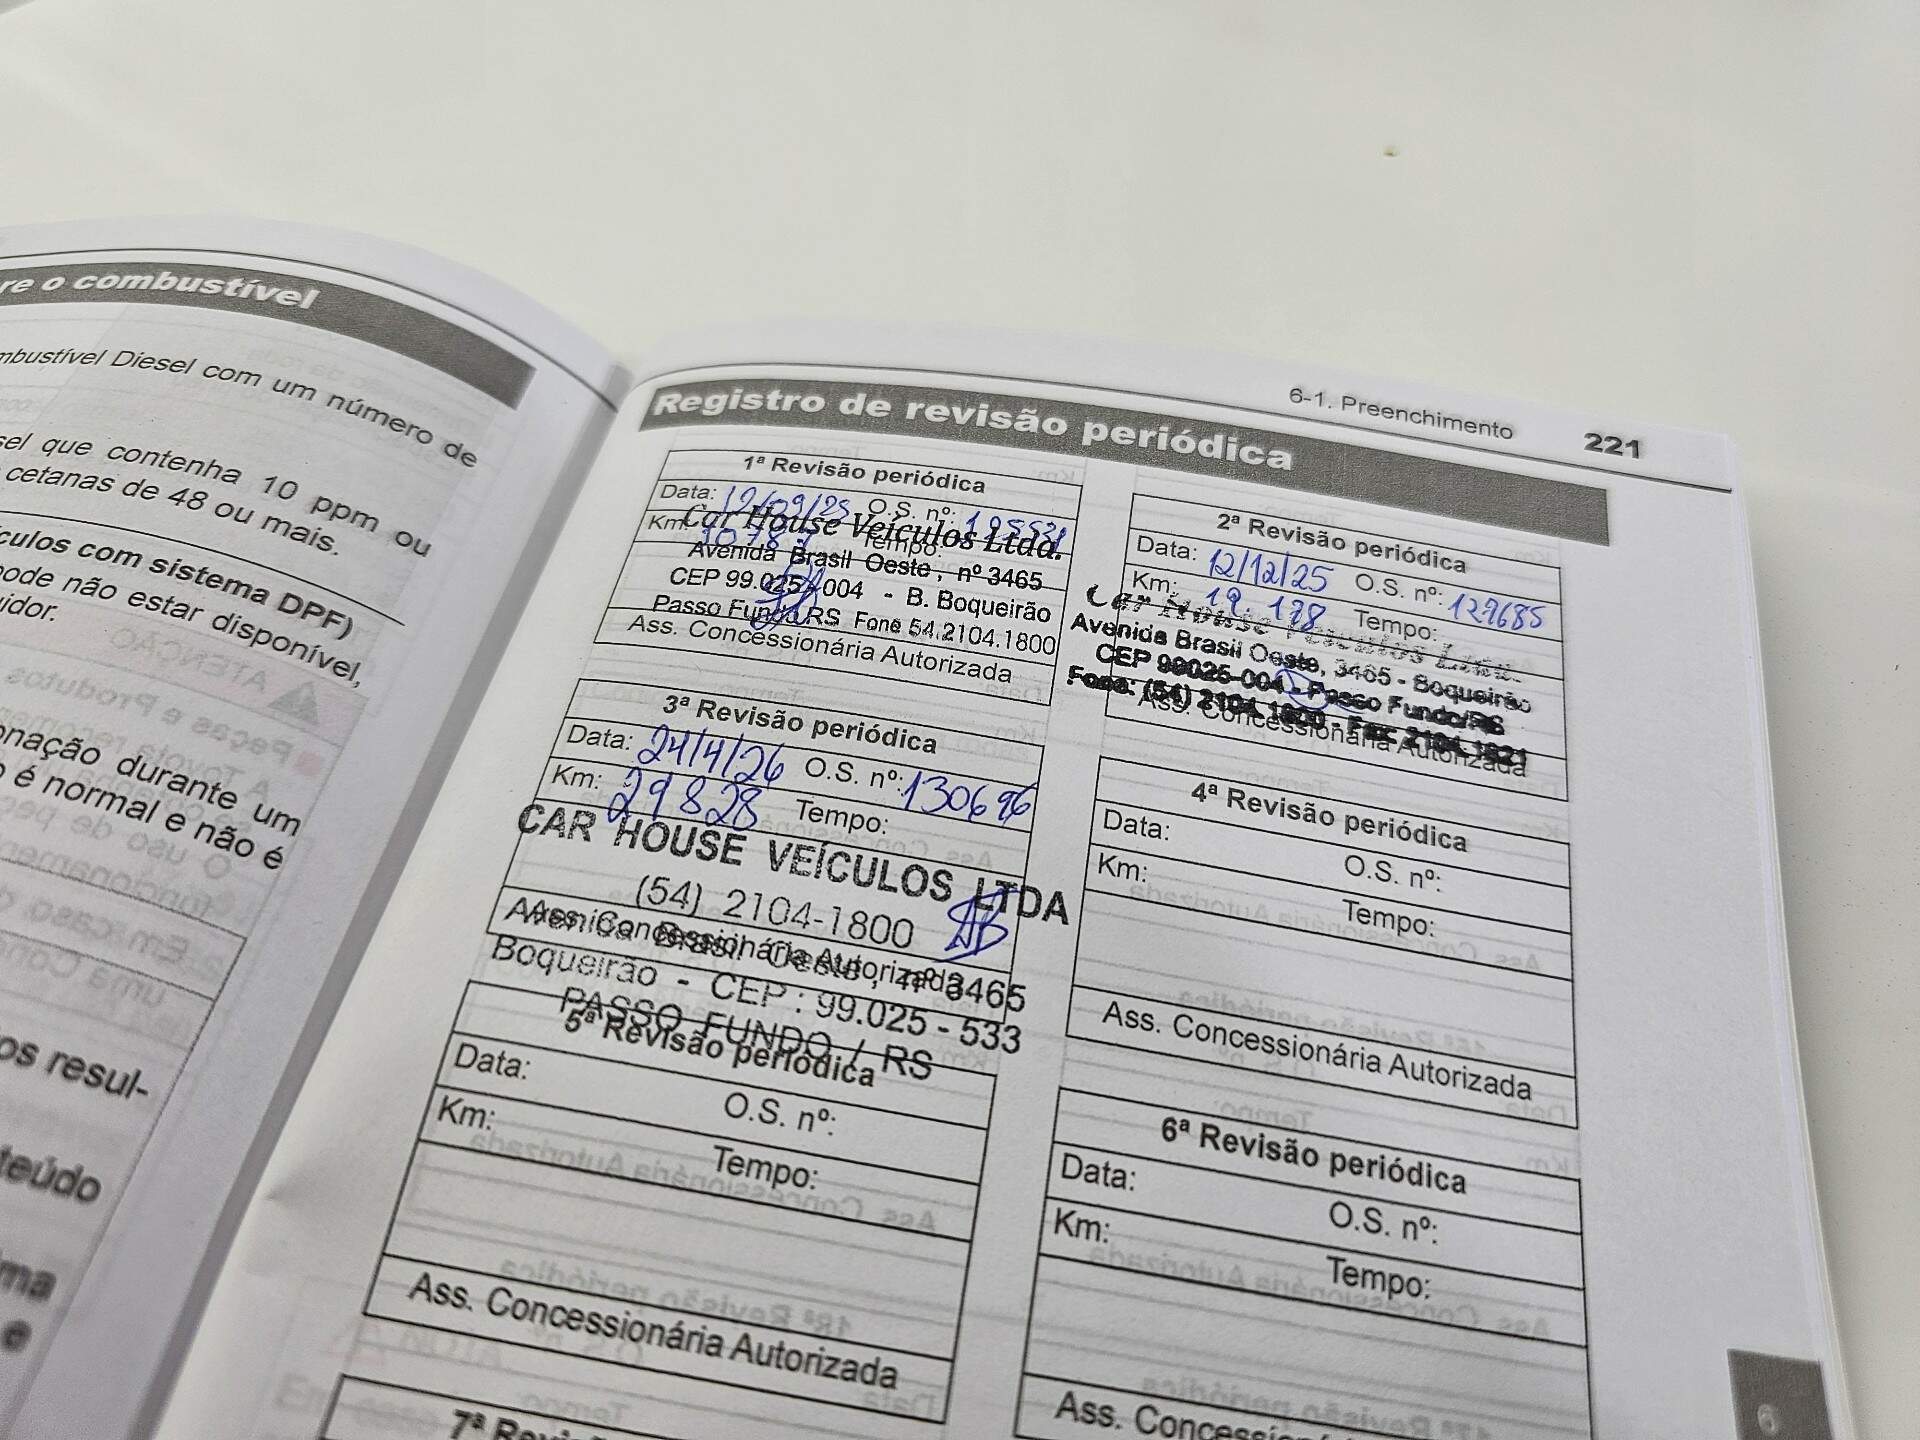 re o combustível
mbustível Diesel com um número de
sel que contenha 10 ppm ou
cetanas de 48 ou mais.
culos com sistema DPF)
pode não estar disponível,
uidor.
onação durante um
o é normal e não é
os resul-
teúdo
ma
e
6-1. Preenchimento 221
Registro de revisão periódica
1ª Revisão periódica
Data: 12/09/25 O.S. nº:
Km: Tempo:
Car House Veículos Ltda.
Avenida Brasil Oeste, nº 3465
CEP 99.025-004 - B. Boqueirão
Passo Fundo/RS Fone 54.2104.1800
Ass. Concessionária Autorizada
2ª Revisão periódica
Data: 12/12/25 O.S. nº: 129685
Km: 19.178 Tempo:
Car House Veículos Ltda.
Avenida Brasil Oeste, 3465 - Boqueirão
CEP 99025-004 - Passo Fundo/RS
Fone: (54) 2104.1800 - Fax: 2104.1821
Ass. Concessionária Autorizada
3ª Revisão periódica
Data: 24/4/26 O.S. nº: 130696
Km: 29828 Tempo:
CAR HOUSE VEÍCULOS LTDA
(54) 2104-1800
Ass. Concessionária Autorizada
Avenida Brasil Oeste, nº 3465
Boqueirão - CEP: 99.025-533
PASSO FUNDO / RS
4ª Revisão periódica
Data: O.S. nº:
Km: Tempo:
Ass. Concessionária Autorizada
5ª Revisão periódica
Data: O.S. nº:
Km: Tempo:
Ass. Concessionária Autorizada
6ª Revisão periódica
Data: O.S. nº:
Km: Tempo:
Ass. Concess
7ª Revis
6